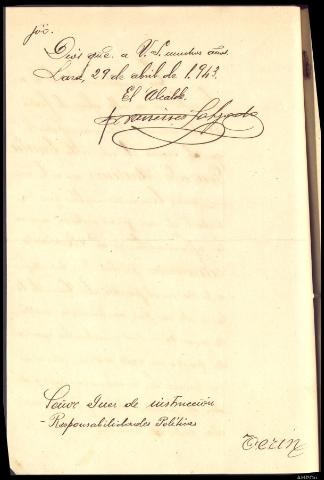 Dios gue. a V. S. muchos años.
Lara, 29 de abril de 1.943.
El Alcalde.
Francisco Salgado
Señor Juez de instrucción
- Responsabilidades Políticas
Terin
AHPOu